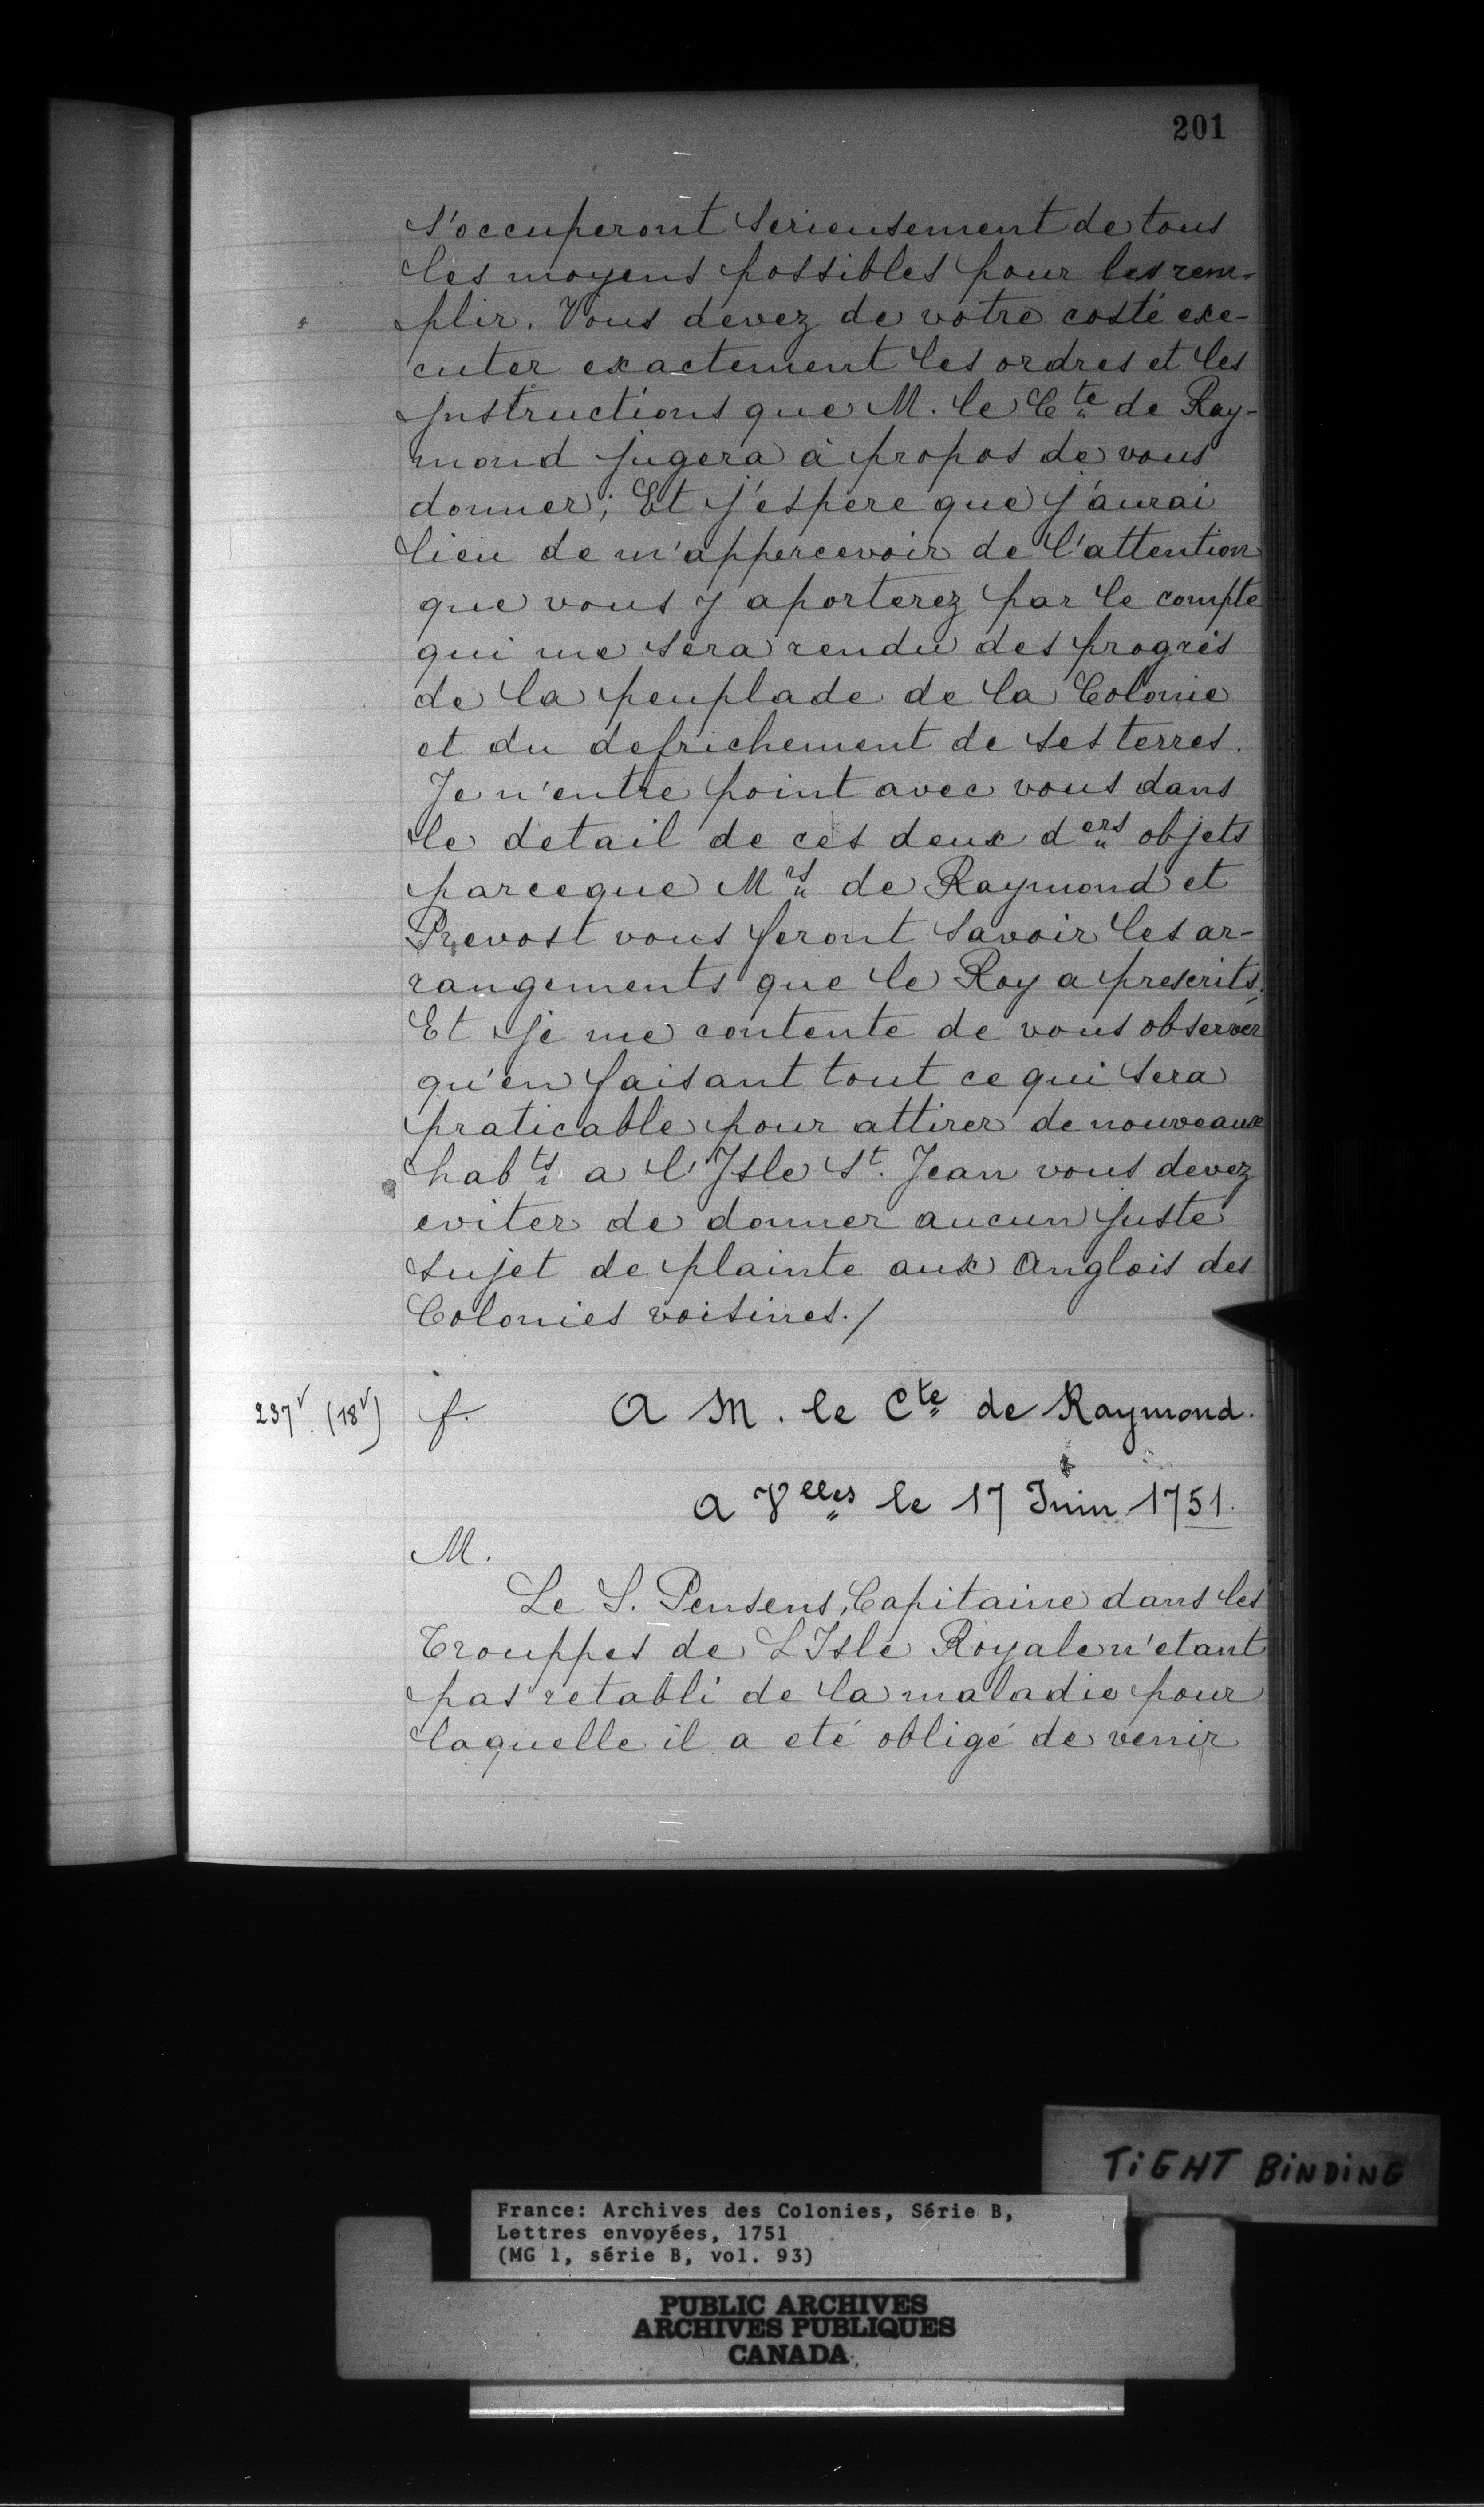 201
s'occuperont serieusement de tous
les moyens possibles pour les rem-
plir. Vous devez de votre costé exe-
cuter exactement les ordres et les
Jnstructions que M. le Cte de Ray-
mond jugera à propos de vous
donner; Et j'espere que j'aurai
lieu de m'appercevoir de l'attention
que vous y aporterez par le compte
qui me sera rendu des progrés
de la peuplade de la Colonie
et du defrichement de ses terres.
Je n'entre point avec vous dans
le detail de ces deux ders objets
parceque Mrs de Raymond et
Prevost vous feront savoir les ar-
rangements que le Roy a prescrits;
Et je me contente de vous observer
qu'en faisant tout ce qui sera
praticable pour attirer de nouveaux
habts a l'Jsle St. Jean vous devez
eviter de donner aucun juste
sujet de plainte aux Anglois des
Colonies voisines./
237v (18v) f. A M. le Cte de Raymond.
A Vlles le 17 Juin 1751.
M.
Le S. Pensens, Capitaine dans les
Trouppes de L'Isle Royale n'etant
pas retabli de la maladie pour
laquelle il a eté obligé de venir
TIGHT BINDING
France: Archives des Colonies, Série B,
Lettres envoyées, 1751
(MG 1, série B, vol. 93)
PUBLIC ARCHIVES
ARCHIVES PUBLIQUES
CANADA